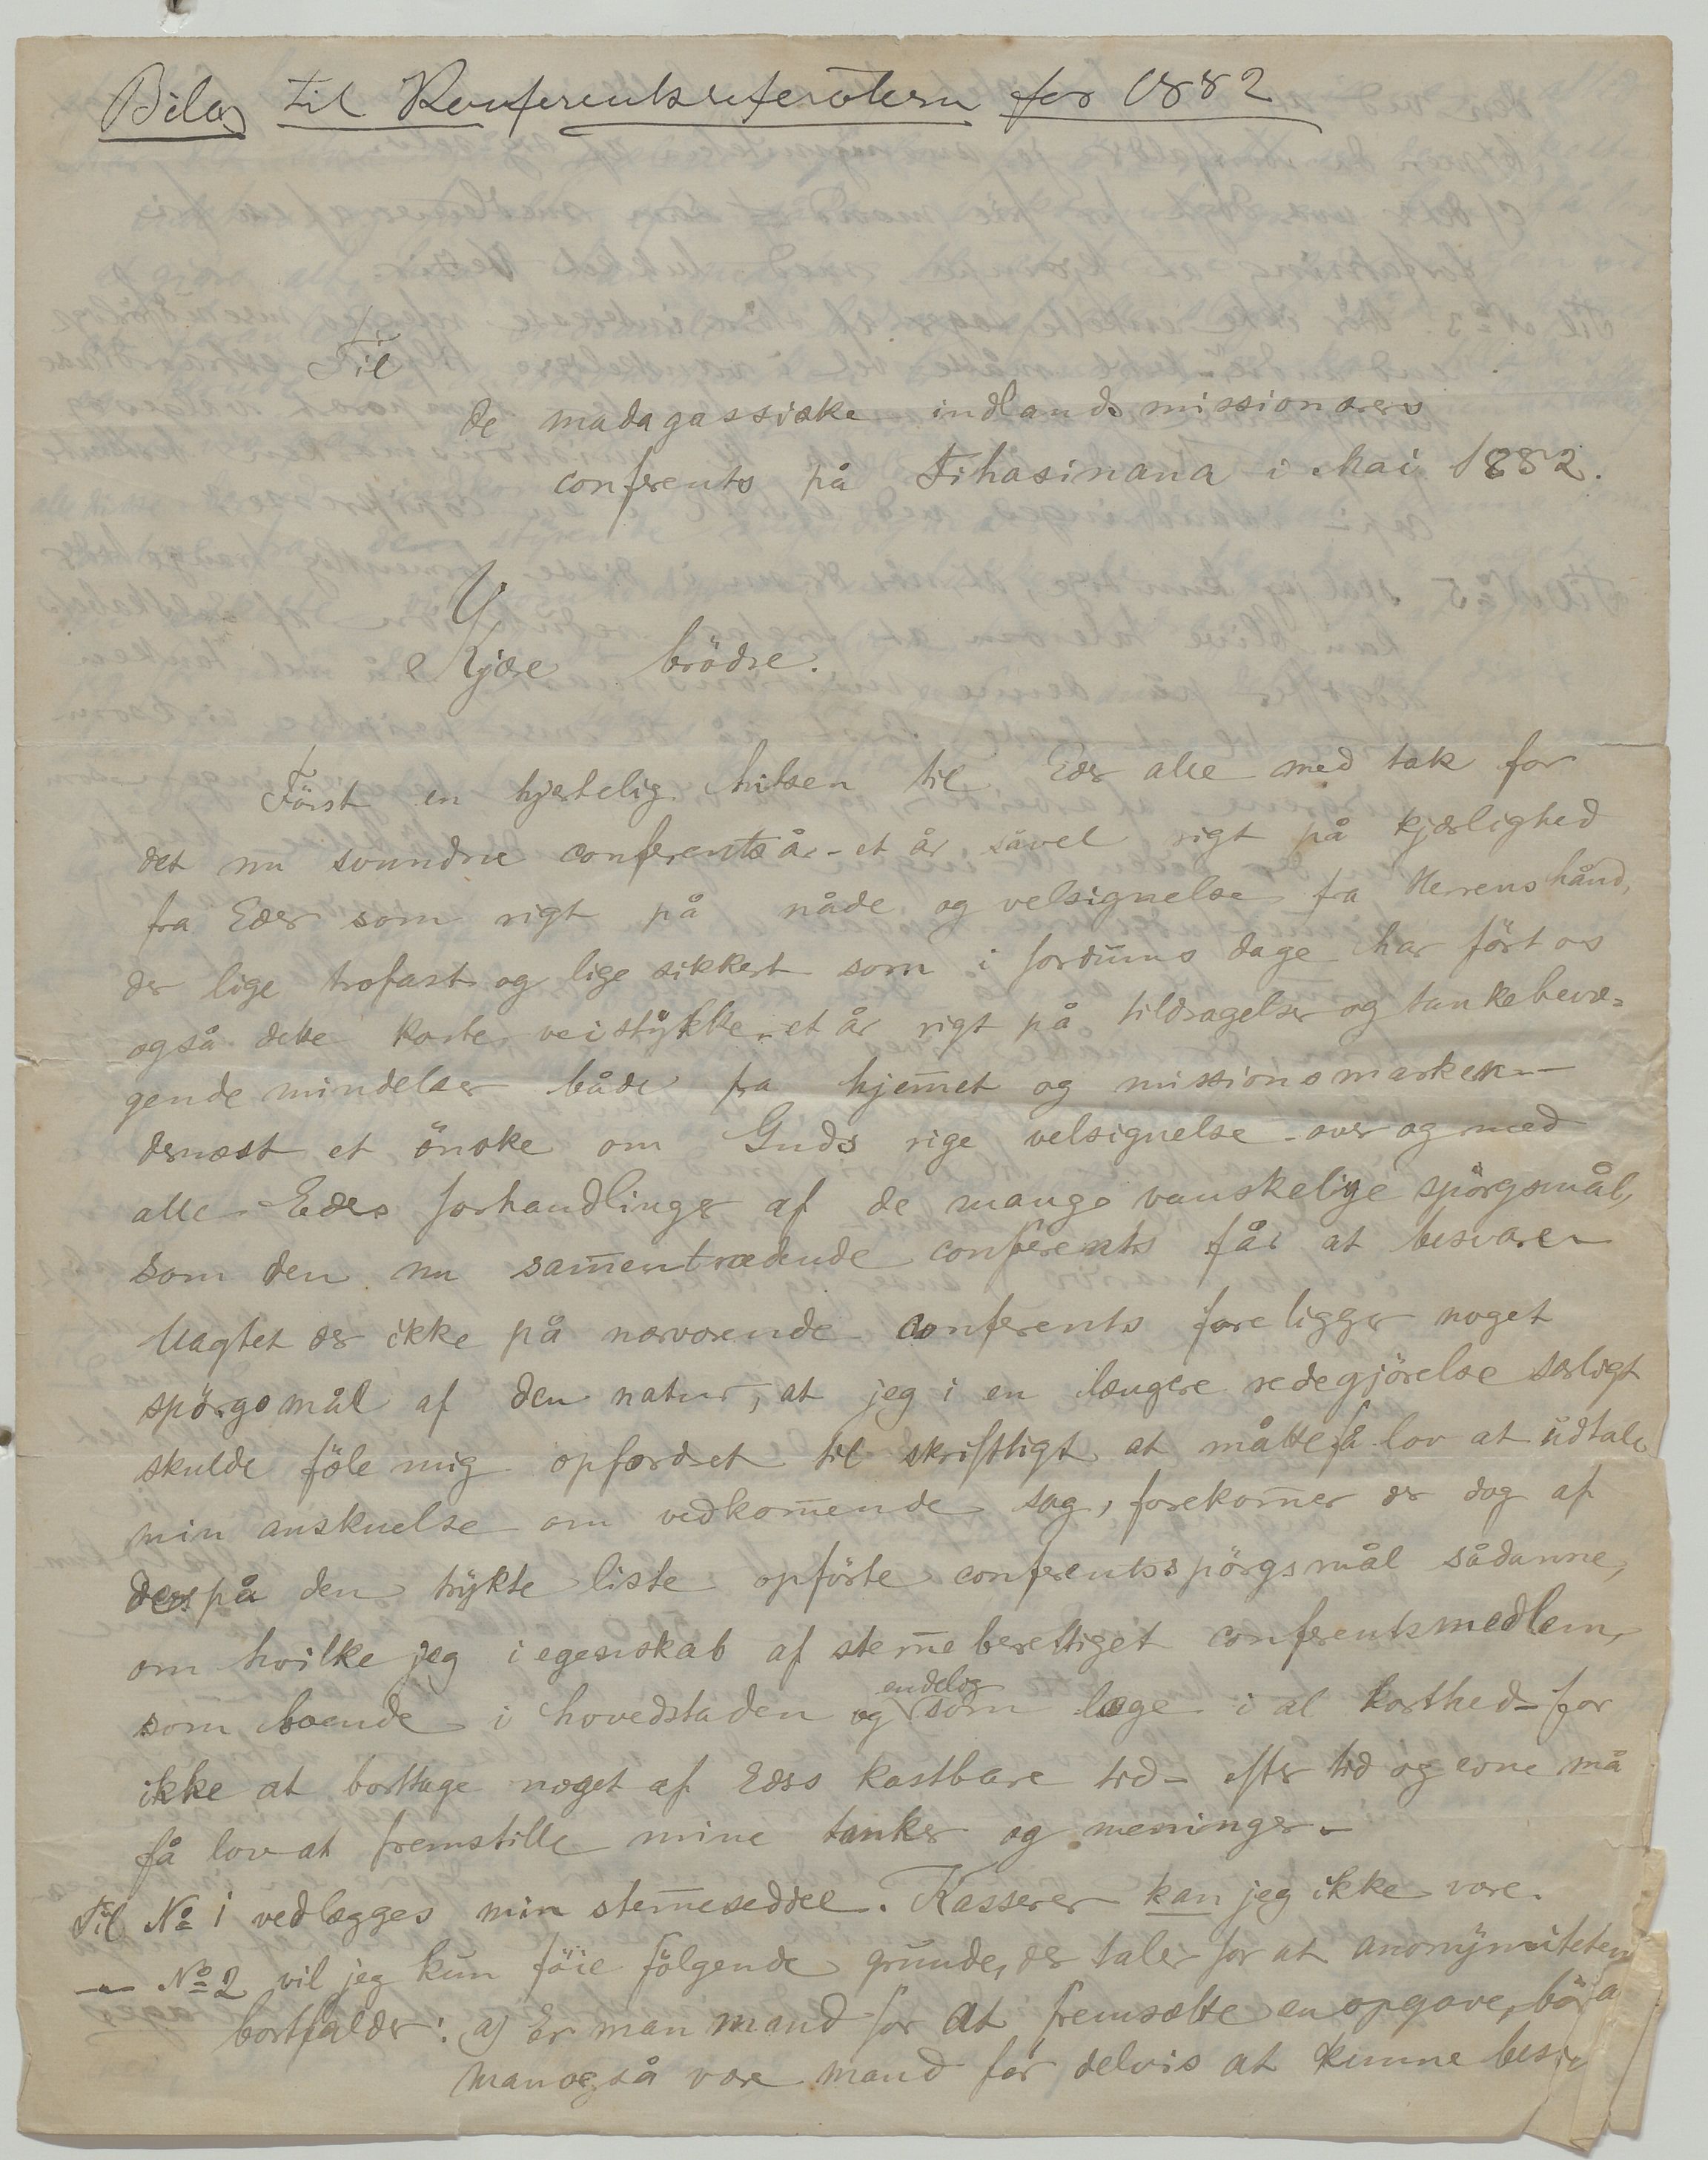 Bilag til Konferentsreferatern for 1882
Til
de madagassiske indlands missionærers
conferents på Fihasinana i Mai 1882.
Kjære brödre.
Först en hjertelig hilsen til Eder alle med tak for
det nu svundne conferentsår - et år såvel rigt på kjærlighed
fra Eder som rigt på nåde og velsignelse fra Herrens hånd,
der lige trofast og lige sikkert som i fordums dage har fört os
også dette korte veistykke - et år rigt på tildragelser og tankebevæ-
gende mindelser både fra hjem̅et og missionsmarken -
dernæst et önske om Guds rige velsignelse over og med
alle Eders forhandlinger af de mange vanskelige spörgsmål,
som den nu sam̅entrædende conferents får at besvare.
Uagtet der ikke på nærværende conferents foreligger noget
spörgsmål af den natur, at jeg i en længere redegjörelse særligt
skulde föle mig opfordret til skriftligt at måtte få lov at udtale
min anskuelse om vedkom̅ende sag, forekom̅er der dog af
de på den trykte liste opförte conferentsspörgsmål sådanne,
om hvilke jeg i egenskab af stem̅eberettiget conferentsmedlem,
som boende i hovedstaden og endelig som læge i al korthed - for
ikke at borttage noget af Eders kostbare tid - efter tid og evne må
få lov at fremstille mine tanker og meninger. -
Til No 1 vedlægges min stem̅eseddel. Kasserer kan jeg ikke være.
— No 2 vil jeg kun föie fölgende grunde, der taler for at anonymiteten
bortfalder: a) Er man mand for at fremsætte en opgave, bör
man også være mand for delvis at kunne